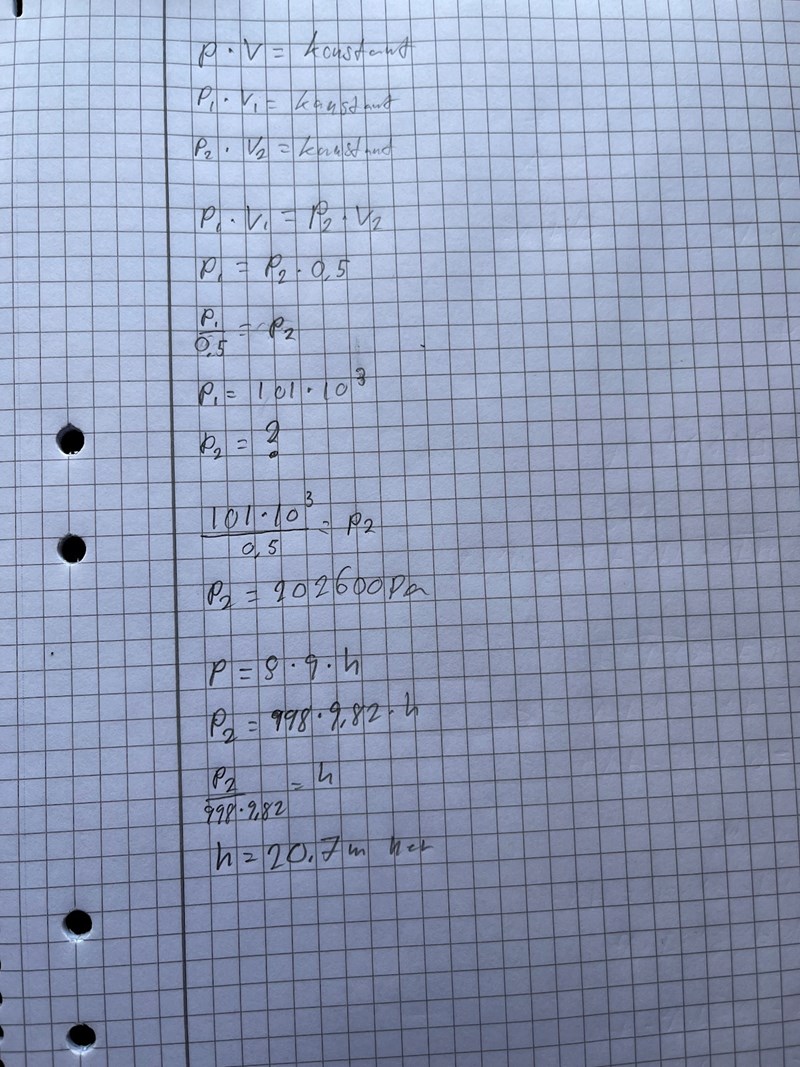 p · V = konstant
P₁ · V₁ = konstant
P₂ · V₂ = konstant
P₁ · V₁ = P₂ · V₂
P₁ = P₂ · 0,5
P₁/0,5 = P₂
P₁ = 101 · 10³
P₂ = ?
101 · 10³/0,5 = P₂
P₂ = 202600 Pa
P = ρ · g · h
P₂ = 998 · 9,82 · h
P₂/998 · 9,82 = h
h = 20,7 m ner